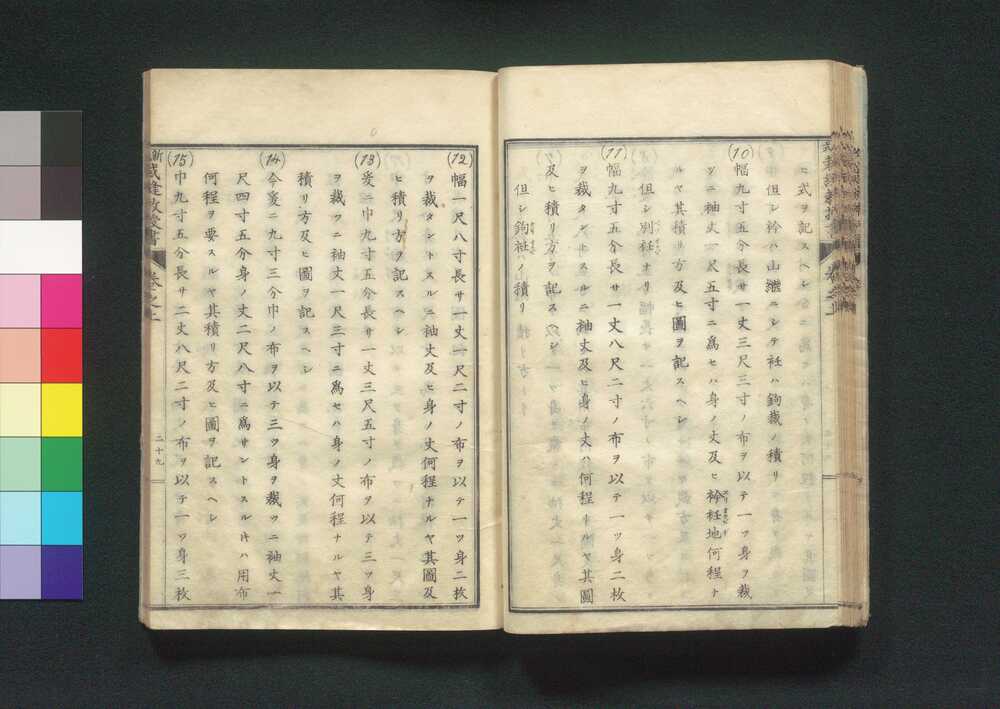 ヒ式ヲ記スヘシ
但シ衿ハ山繼ニシテ衽ハ鉤裁ノ積リ
(10)幅九寸五分長サ一丈三尺三寸ノ布ヲ以テ一ツ身ヲ裁
ツニ袖丈一尺五寸ニ爲セハ身ノ丈及ヒ衿衽地何程ト
ルヤ其積リ方及ヒ圖ヲ記スヘシ
但シ別衽ナリ
(11)幅九寸五分長サ一丈八尺二寸ノ布ヲ以テ一ツ身二枚
ヲ裁タントスルニ袖丈及ヒ身ノ丈ハ何程ナルヤ其圖
及ヒ積リ方ヲ記スヘシ
但シ鉤衽ノ積リ
(12)幅一尺八寸長サ一丈一尺二寸ノ布ヲ以テ一ツ身二枚
ヲ裁タントスルニ袖丈及ヒ身ノ丈何程ナルヤ其圖及
ヒ積リ方ヲ記スヘシ
(13)爰ニ巾九寸五分長サ一丈三尺五寸ノ布ヲ以テ三ツ身
ヲ裁ツニ袖丈一尺三寸ニ爲セハ身ノ丈何程ナルヤ其
積リ方及ヒ圖ヲ記スヘシ
(14)今爰ニ九寸三分巾ノ布ヲ以テ三ツ身ヲ裁ツニ袖丈一
尺四寸五分身ノ丈二尺八寸ニ爲サントスル𪜈ハ用布
何程ヲ要スルヤ其積リ方及ヒ圖ヲ記スヘシ
(15)巾九寸五分長サ二丈八尺二寸ノ布ヲ以テ一ツ身三枚
新 裁縫教授書 卷之上 二十九